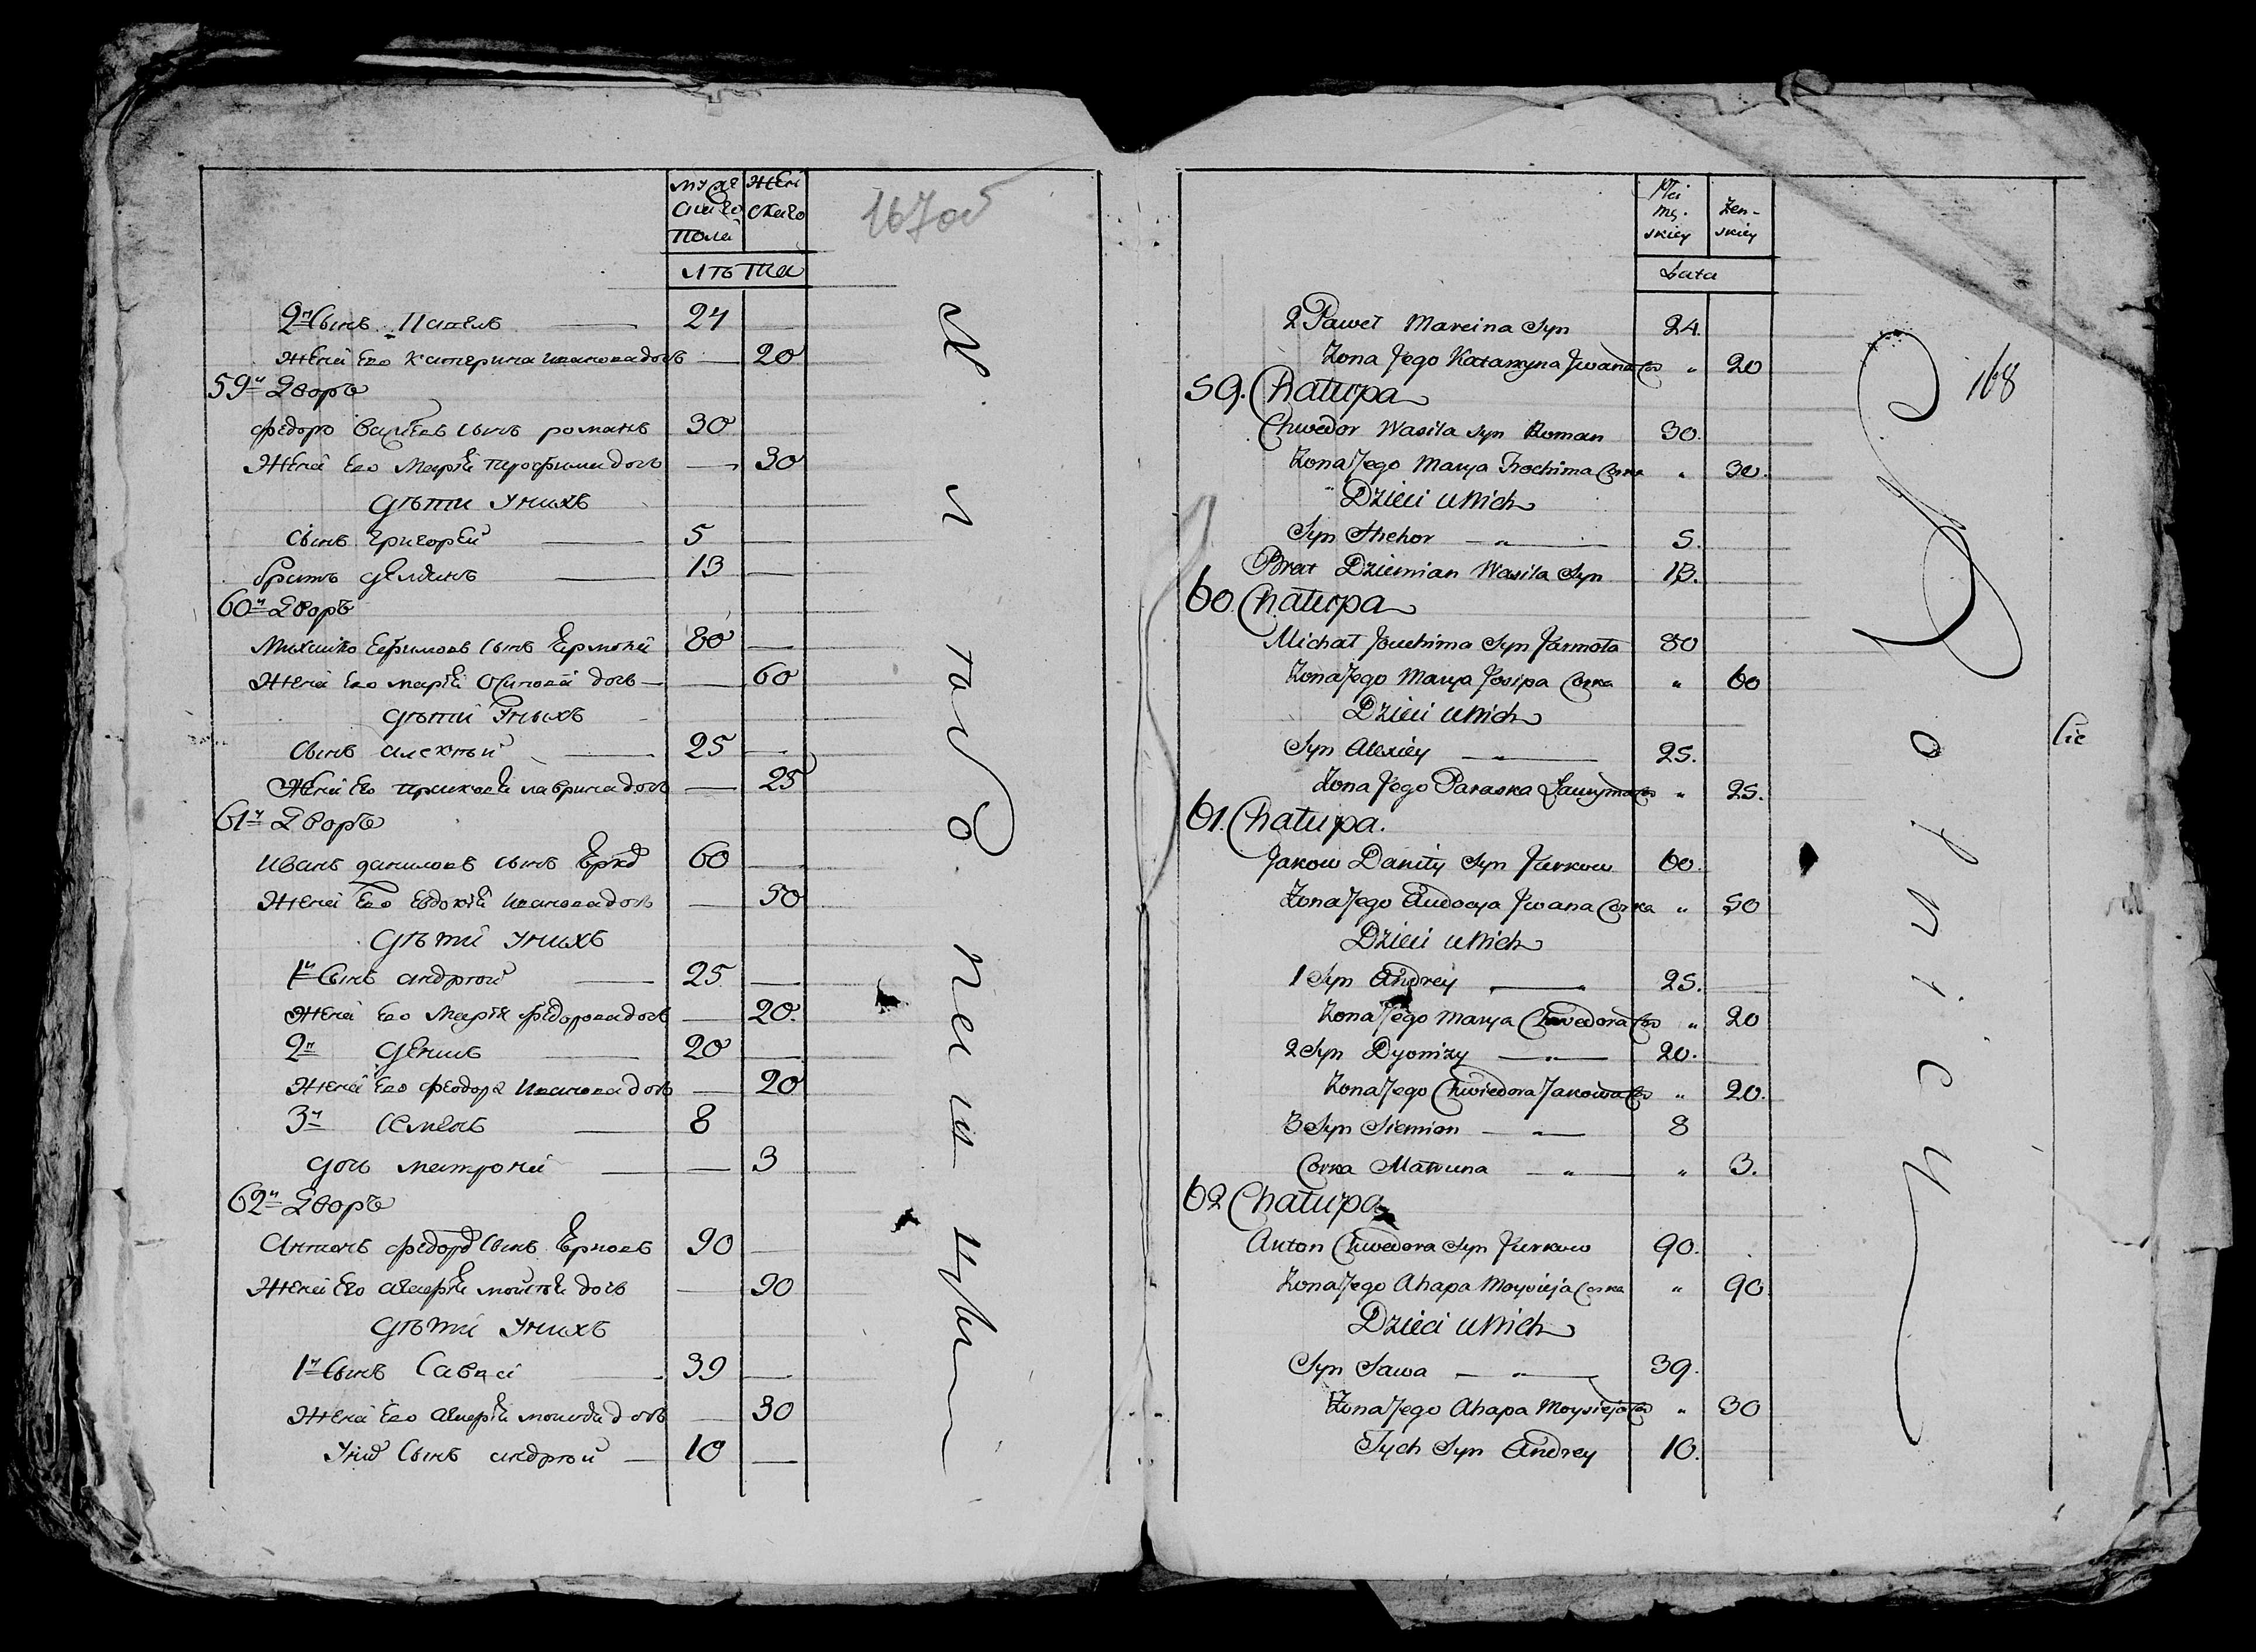 мужескаго пола
женскаго
лѣта
167об
2й Сынъ Павелъ 24
Жена Его Катерина Иванова дочь 20
59й Дворъ
Федоръ Василевъ сынъ романъ 30
Жена Его Марія трофима дочь 30
дѣти У нихъ
Сынъ григорей 5
братъ демянъ 13
60й Дворъ
Михайло Ефимовъ сынъ Ермола 80
Жена Его марія Осипова дочь 60
дѣти У ныхъ
Сынъ алексѣй 25
Жена Его прасковя лаврина дочь 25
61й Дворъ
Иванъ даниловъ сынъ 60
Жена Его Евдокія Иванова дочь 50
дѣти У нихъ
1й Сынъ андрѣй 25
Жена Его Марія федорова дочь 20
2й денисъ 20
Жена Его феодора Иванова дочь 20
3й Семенъ 8
дочь матрона 3
62й Дворъ
Антонъ федоровъ Сынъ 90
Жена Его агафія мойсѣя дочь 90
дѣти У нихъ
1й Сынъ Савва 39
Жена Его агафія дочь 30
У нихъ Сынъ андрѣй 10
Płci Męskiey
Żenskiey
Lata
168
2 Paweł Marcina Syn 24.
Zona Jego Katarzyna Jwana Cor " 20
59. Chałupa
Chwedor Wasila Syn Roman 30.
Zona Jego Marya Trochima Corka " 30.
Dzieci u Nich
Syn Hrehor — " — 5.
Brat Dziemian Wasila Syn 13.
60 Chałupa
Michał Jouchima Syn Jarmoła 80
Zona Jego Marya Josipa Corka " 60
Dzieci u Nich
Syn Alexiey — " — 25.
Zona Jego Paraska Ławryna Cor " 25.
61. Chałupa.
Jakow Daniły Syn Jurkow 60.
Zona Jego Audocya Jwana Corka " 50
Dzieci u Nich
1 Syn Andrey 25.
Zona Jego Marya Chwedora Cor " 20
2 Syn Dyonizy — " — 20.
Zona Jego Chwiedora Jakowa Cor " 20.
3 Syn Siemion — " — 8
Corka Matruna — " — " 3.
62 Chałupa
Anton Chwedora Syn Jurkow 90.
Zona Jego Ahapa Moysieja Corka " 90.
Dzieci u Nich
Syn Sawa — " — 39.
Zona Jego Ahapa Moysieja Cor " 30
Tych Syn Andrey 10.